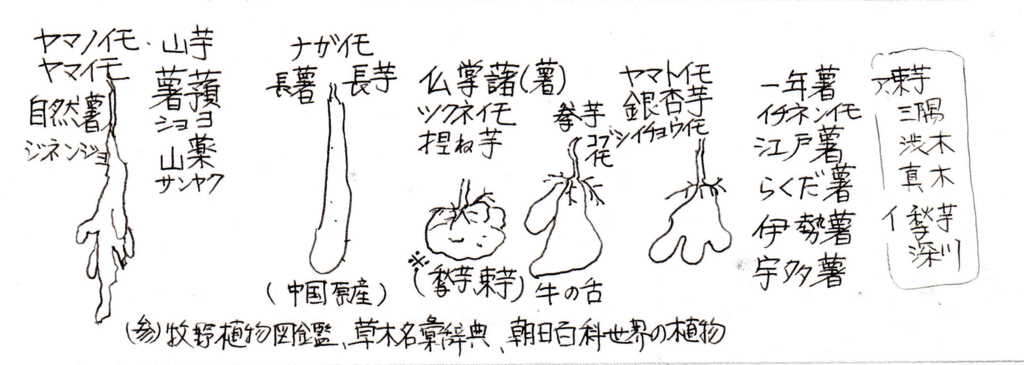 ヤマノイモ・山芋
ヤマイモ
自然薯
ジネンジョ
薯蕷
ショヨ
山薬
サンヤク
ナガイモ
長薯 長芋
(中国原産)
仏掌藷(薯)
ツクネイモ
捏ね芋
拳芋
コブイモ
牛の舌
ヤマトイモ
銀杏芋
イチョウイモ
一年薯
イチネンイモ
江戸薯
らくだ薯
伊勢薯
宇多薯
ア、束芋
三隅
渋木
真木
イ 芋
深川
(参)牧野植物図鑑、草木名彙辞典、朝日百科世界の植物